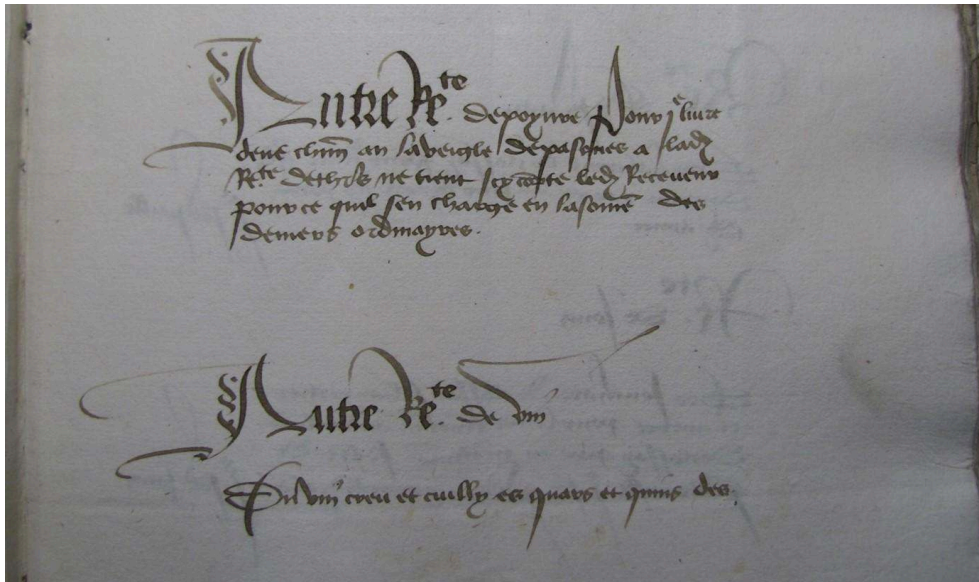 Autre Rte. de poyvre Pour j livre
deue chun an la veigle de pasques a lad
Rte. de thols ne tient icy compte led Receveur
pource quil sen charge en la some des
deniers ordinayres.
Autre Rte. de vin
Du vin creu et cuilly es quars et quins des